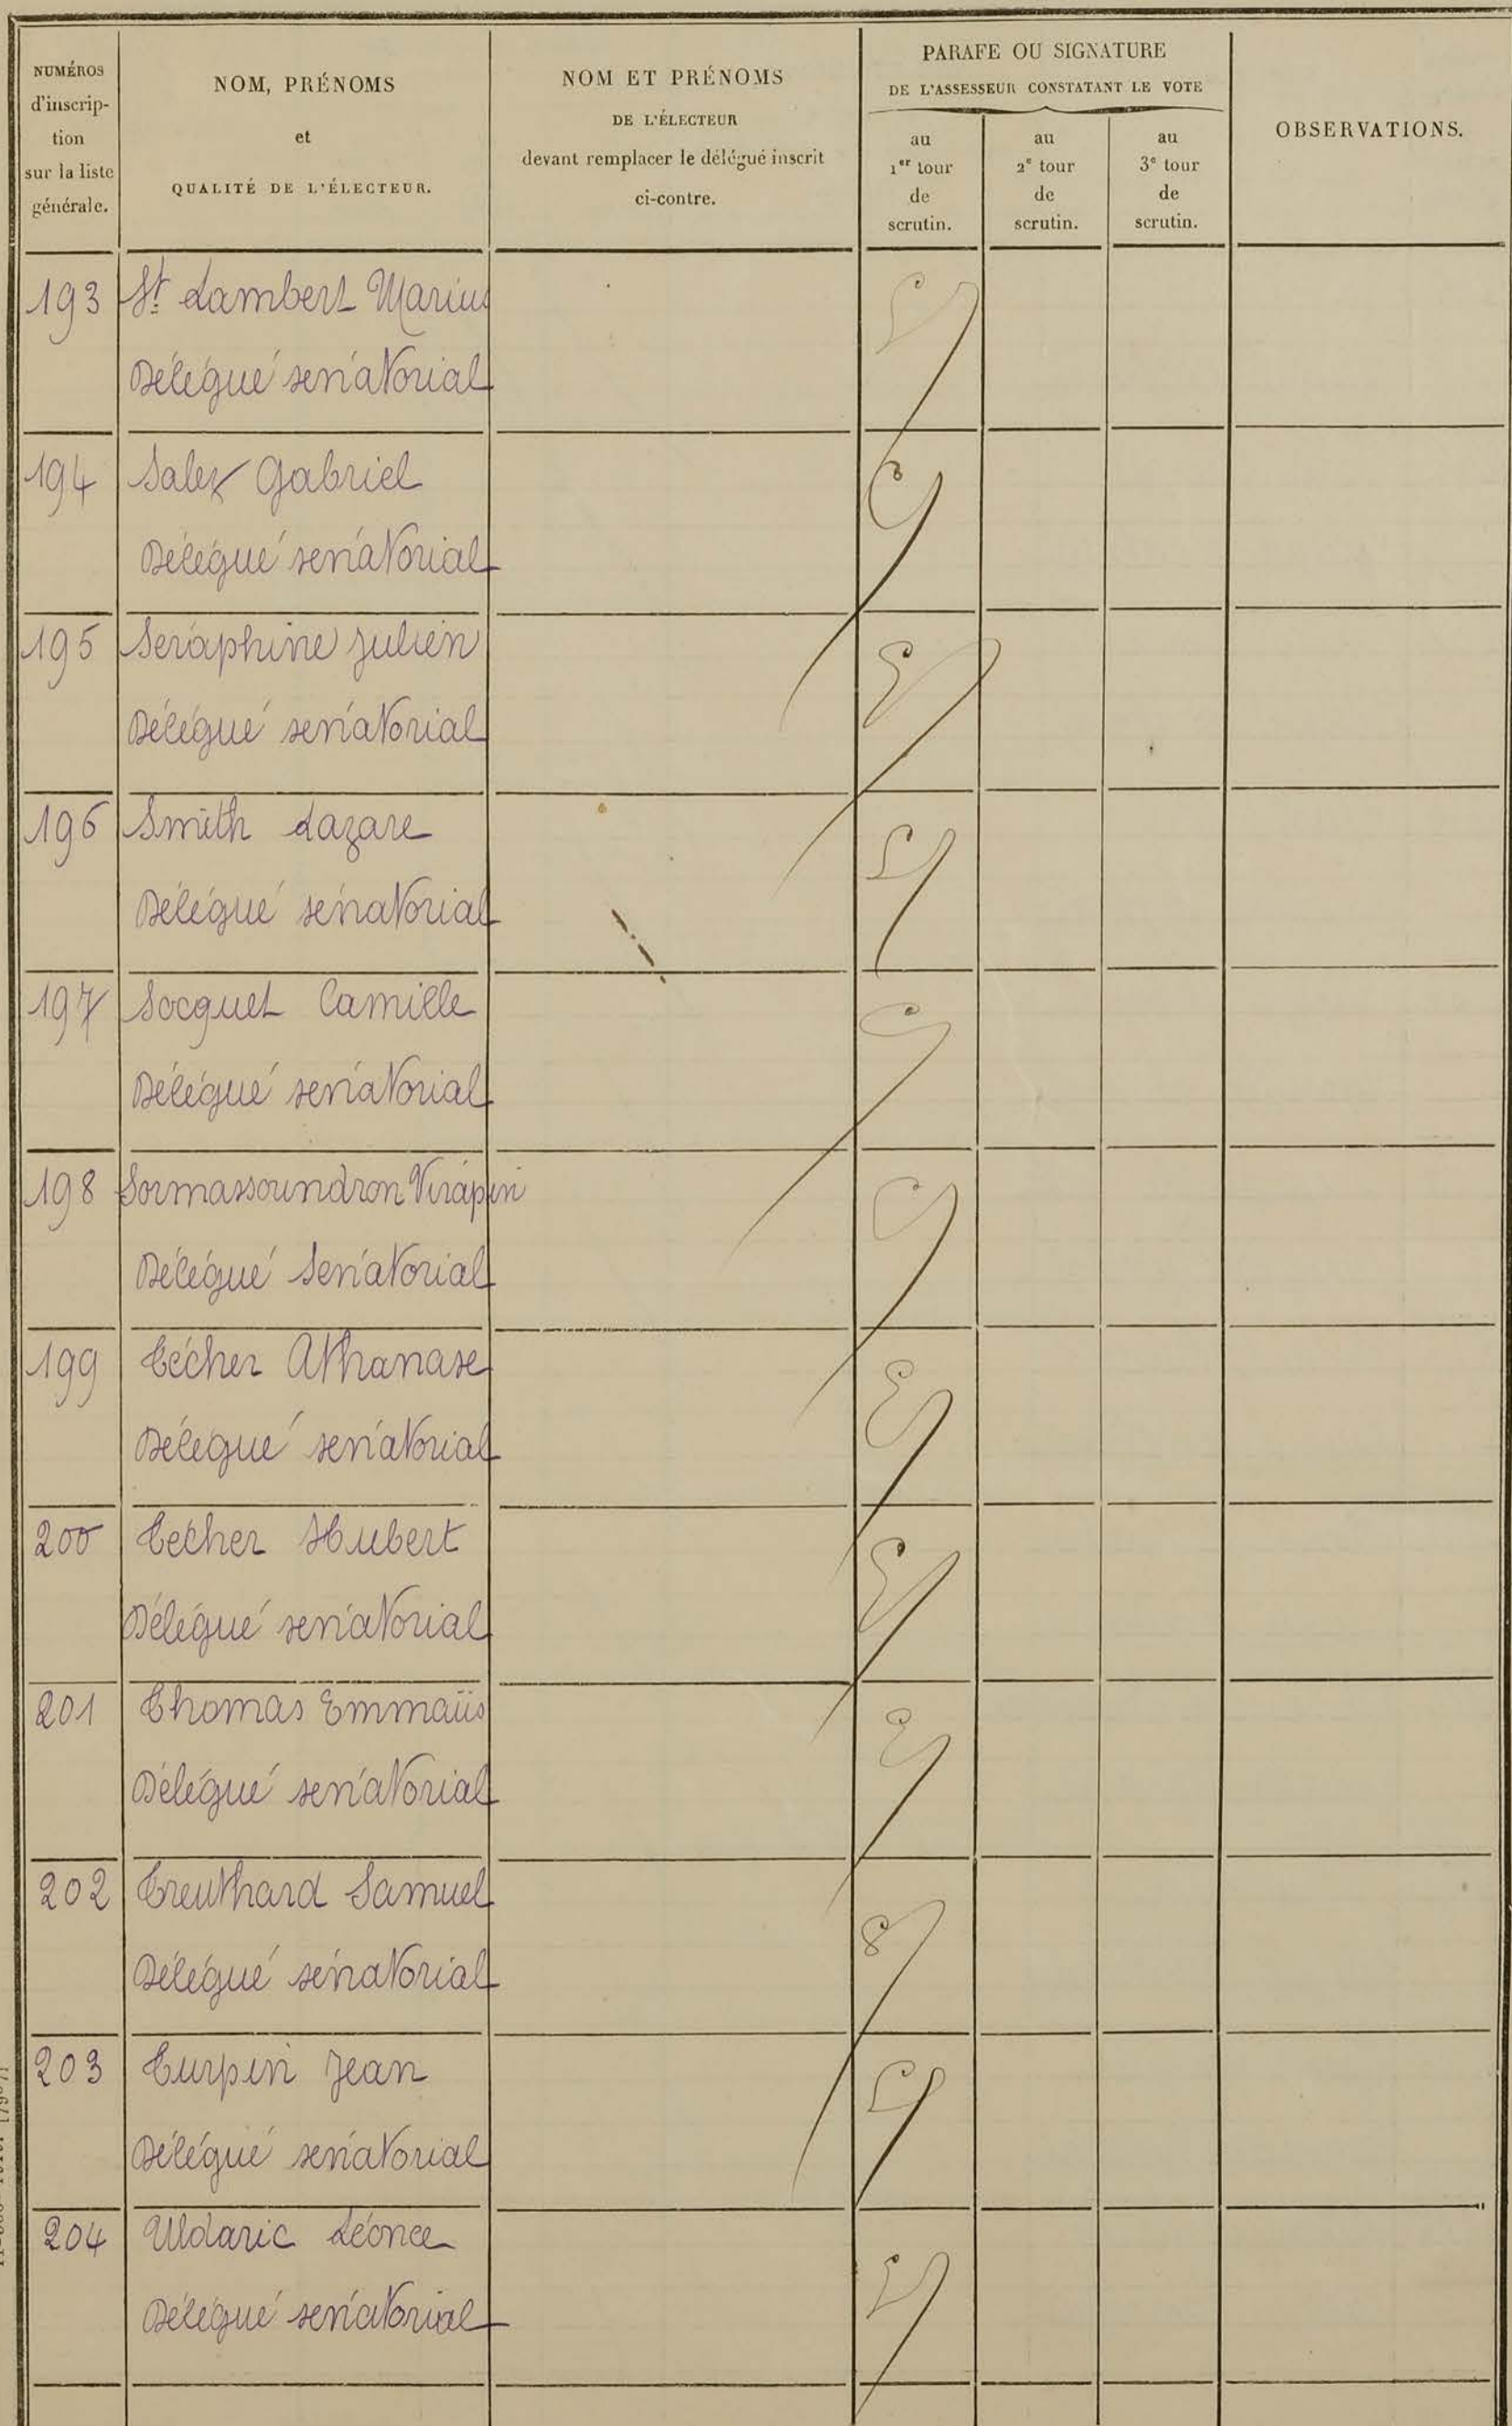 NUMÉROS
d'inscrip-
tion
sur la liste
générale.
NOM, PRÉNOMS
et
QUALITÉ DE L'ÉLECTEUR.
NOM ET PRÉNOMS
DE L'ÉLECTEUR
devant remplacer le délégué inscrit
ci-contre.
PARAFE OU SIGNATURE
DE L'ASSESSEUR CONSTATANT LE VOTE
au
1er tour
de
scrutin.
au
2e tour
de
scrutin.
au
3e tour
de
scrutin.
OBSERVATIONS.
193 St Lambert Marius
Délégué sénatorial
194 Salez Gabriel
Délégué sénatorial
195 Séraphine Julien
Délégué sénatorial
196 Smith Lazare
Délégué sénatorial
197 Socquet Camille
Délégué sénatorial
198 Sormassoundron Virapin
Délégué Sénatorial
199 Técher Athanase
Délégué sénatorial
200 Técher Hubert
Délégué sénatorial
201 Thomas Emmaüs
Délégué sénatorial
202 Treuthard Samuel
Délégué sénatorial
203 Turpin Jean
Délégué sénatorial
204 Uldaric Léonce
Délégué sénatorial